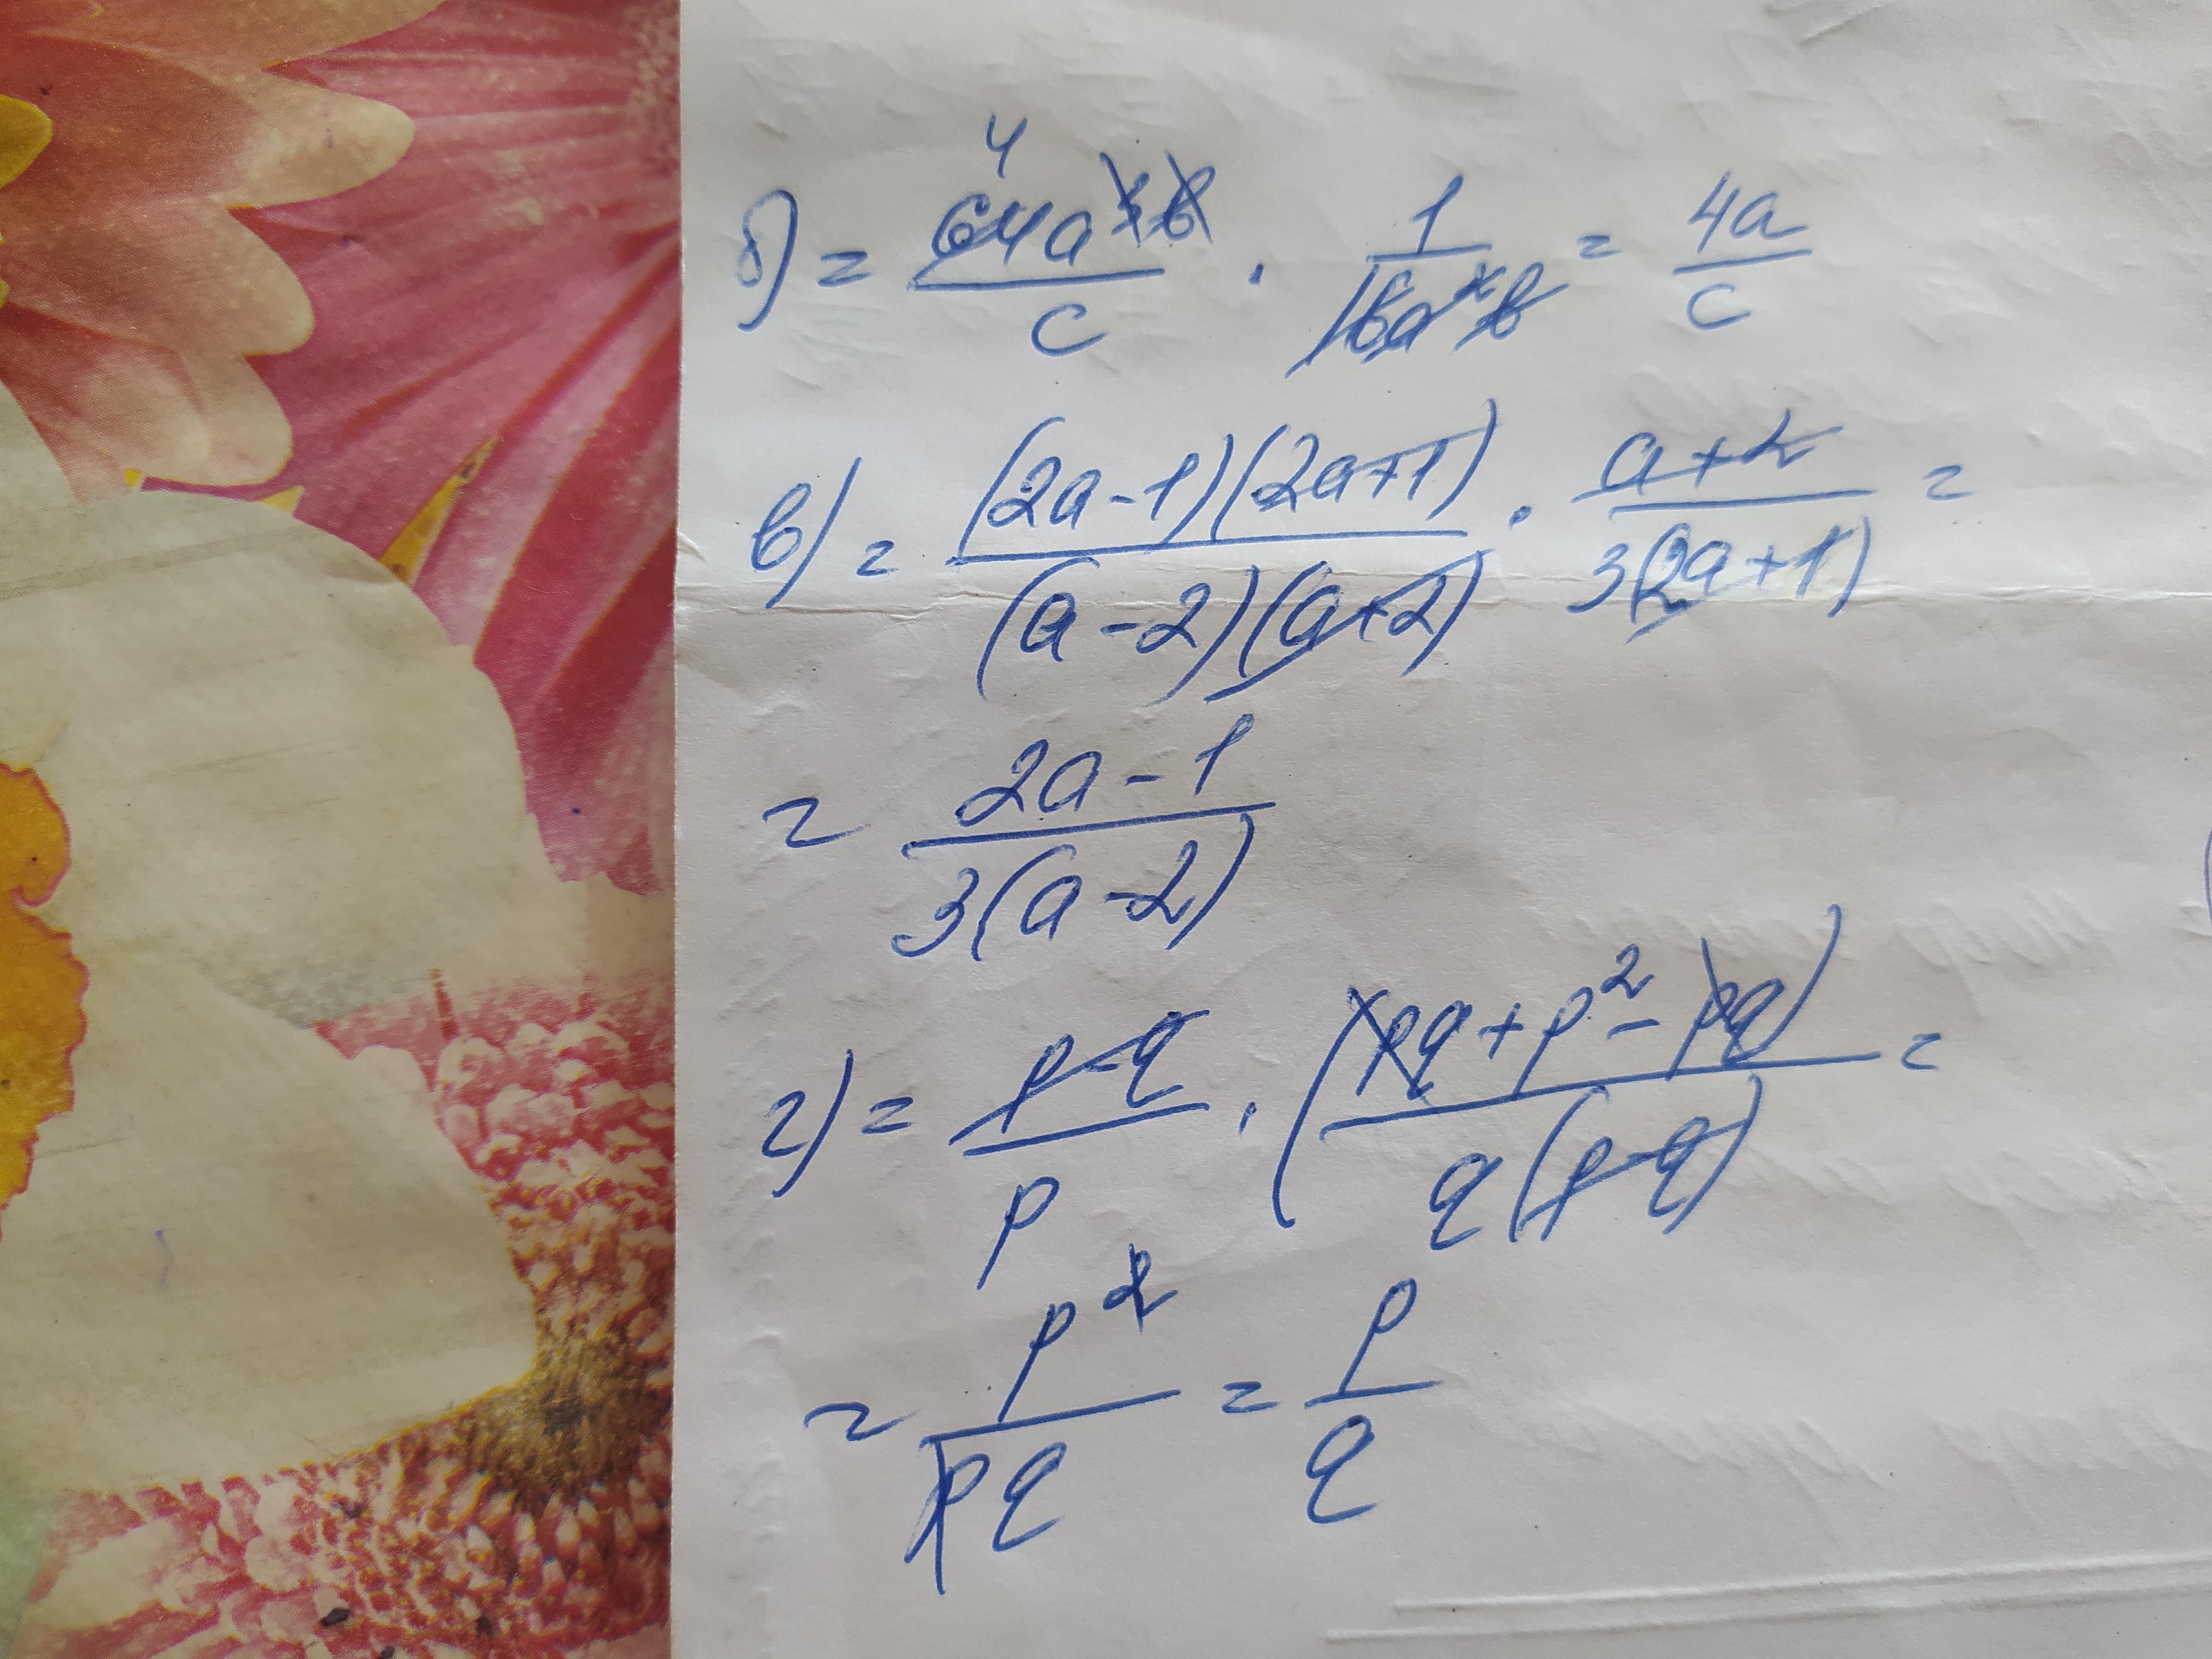 б) = 64a³b/c · 1/16a²b = 4a/c
в) = (2a-1)(2a+1)/(a-2)(a+2) · a+2/3(2a+1) =
= 2a-1/3(a-2)
г) = p-q/p · (pq+p²-pq)/q(p-q) =
= p²/pq = p/q